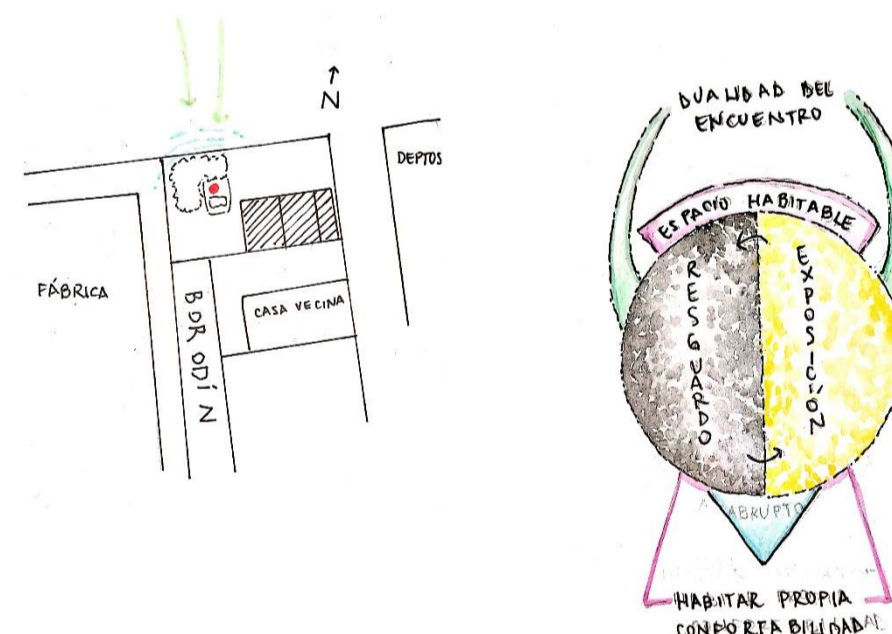 N
DEPTOS
FÁBRICA
BORODÍN
CASA VECINA
DUALIDAD DEL
ENCUENTRO
ESPACIO HABITABLE
RESGUARDO
EXPOSICIÓN
ABRUPTO
HABITAR PROPIA
CONFORTABILIDAD